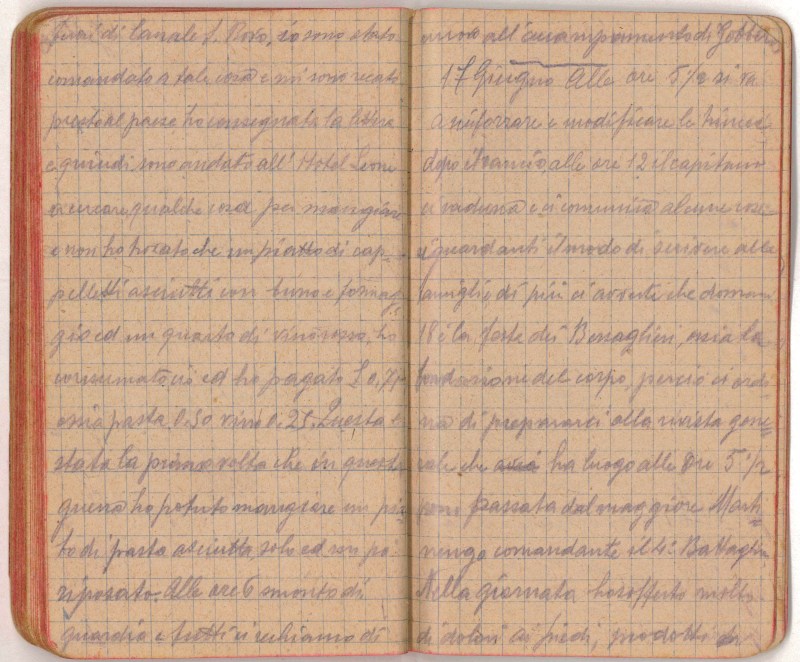 di Canale S. Rovo, io sono stato
comandato a tale cosa e mi sono recato
presto al paese, ho consegnato la lettera
e quindi sono andato all' Hotel Leone
a cercare qualche cosa per mangiare
e non ho trovato che un piatto di cap-
pelletti asciutti con burro e formag-
gio ed un quarto di vino rosso, ho
consumato ciò ed ho pagato £ 0,75
ossia pasta 0.50 vino 0.25. Questa è
stata la prima volta che in questa
guerra ho potuto mangiare un piat-
to di pasta asciutta, solo ed un po'
riposato. Alle ore 6 smonto di
guardia e tutti ci rechiamo di
nuovo all'accampamento di Gobbera
17 Giugno Alle ore 5 1/2 si va
a rinforzare e modificare le trincee
dopo il rancio, alle ore 12 il capitano
ci raduna e ci comunica alcune cose
riguardanti il modo di scrivere alle
famiglie di più ci avverte che domani
18 è la festa dei Bersaglieri, ossia la
fondazione del corpo, perciò ci ordi-
na di prepararci alla rivista gene-
rale che avrà ha luogo alle Ore 5 1/2
pom passata dal maggiore Marti-
nengo comandante il 4° Battaglio
Nella giornata ho sofferto molto
di dolori ai piedi, prodotti